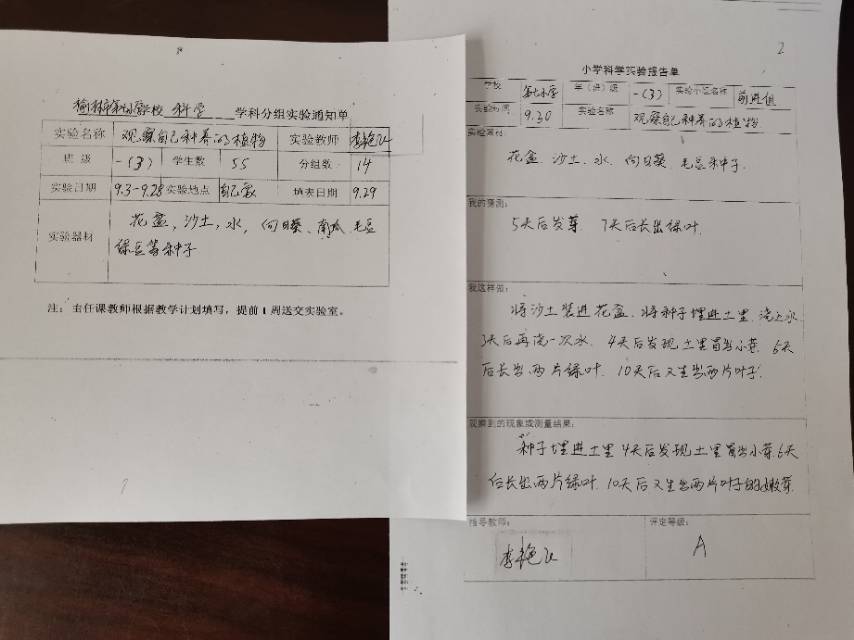 榆林市第七小学校 科学 学科分组实验通知单
实验名称 观察自己种养的植物 实验教师
班 级 一(3) 学生数 55 分组数 14
实验日期 9.3-9.28 实验地点 自己家 填表日期 9.29
实验器材 花盆,沙土,水,向日葵、南瓜、毛豆
绿豆等种子
注:主任课教师根据教学计划填写,提前1周送交实验室。
2
小学科学实验报告单
学校 第七小学 年(班)级 一(3) 实验小组名称 前进组
实验时间 9.30 实验名称 观察自己种养的植物
实验器材
花盆 沙土、水、向日葵、毛豆种子.
我的猜测:
5天后发芽. 7天后长出绿叶.
我这样做:
将沙土装进花盆、将种子埋进土里、浇上水
3天后再浇一次水. 4天后发现土里冒出小芽. 6天
后长出两片绿叶. 10天后又生出两片叶子.
观察到的现象或测量结果:
种子埋进土里4天后发现土里冒出小芽.6天
后长出两片绿叶.10天后又生出两片叶子的嫩芽.
指导教师: 评定等级:
A